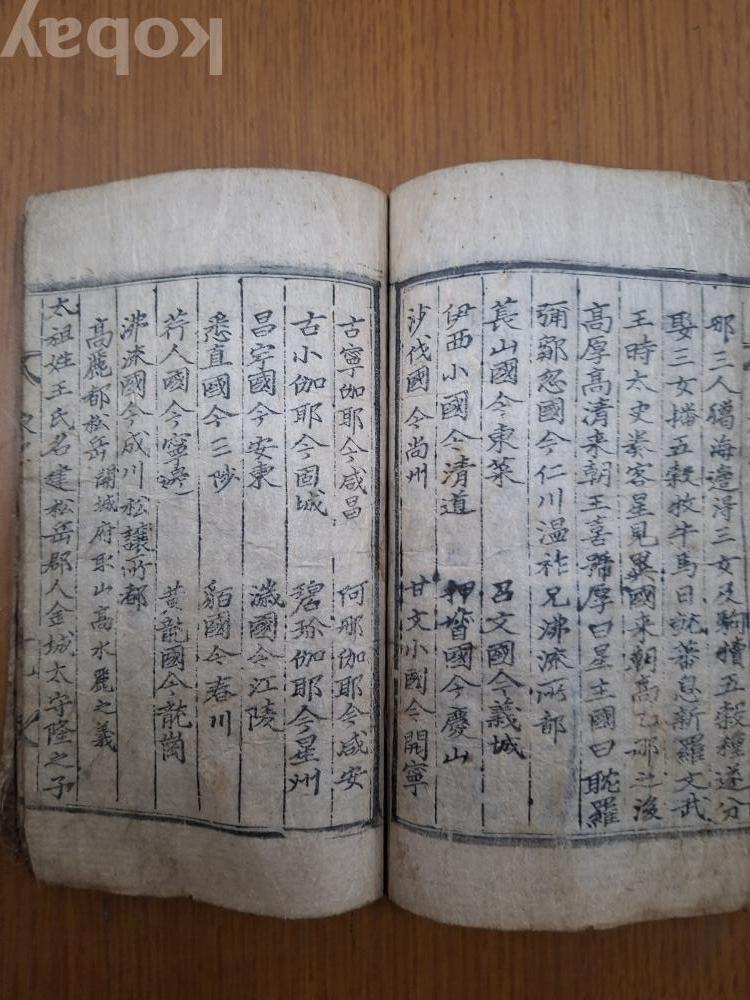 耶三人獦海邊得三女及駒犢五穀種遂分
娶三女播五穀牧牛馬日就蕃息新羅文武
王時太史奏客星見異國来朝高乙那之後
高厚高清来朝王喜號厚曰星主國曰耽羅
彌鄒忽國今仁川温祚兄沸流所都
萇山國今東萊 召文國今義城
伊西小國今清道 押督國今慶山
沙伐國今尚州 甘文小國今開寧
古寧伽耶今咸昌 阿那伽耶今咸安
古小伽耶今固城 碧珍伽耶今星州
昌寧國今安東 濊國今江陵
悉直國今三陟 貊國今春川
荇人國今寧邊 黄龍國今龍崗
沸流國今成川松讓所都
高麗都松岳開城府取山高水麗之義
太祖姓王氏名建松岳郡人金城太守隆之子
kobay